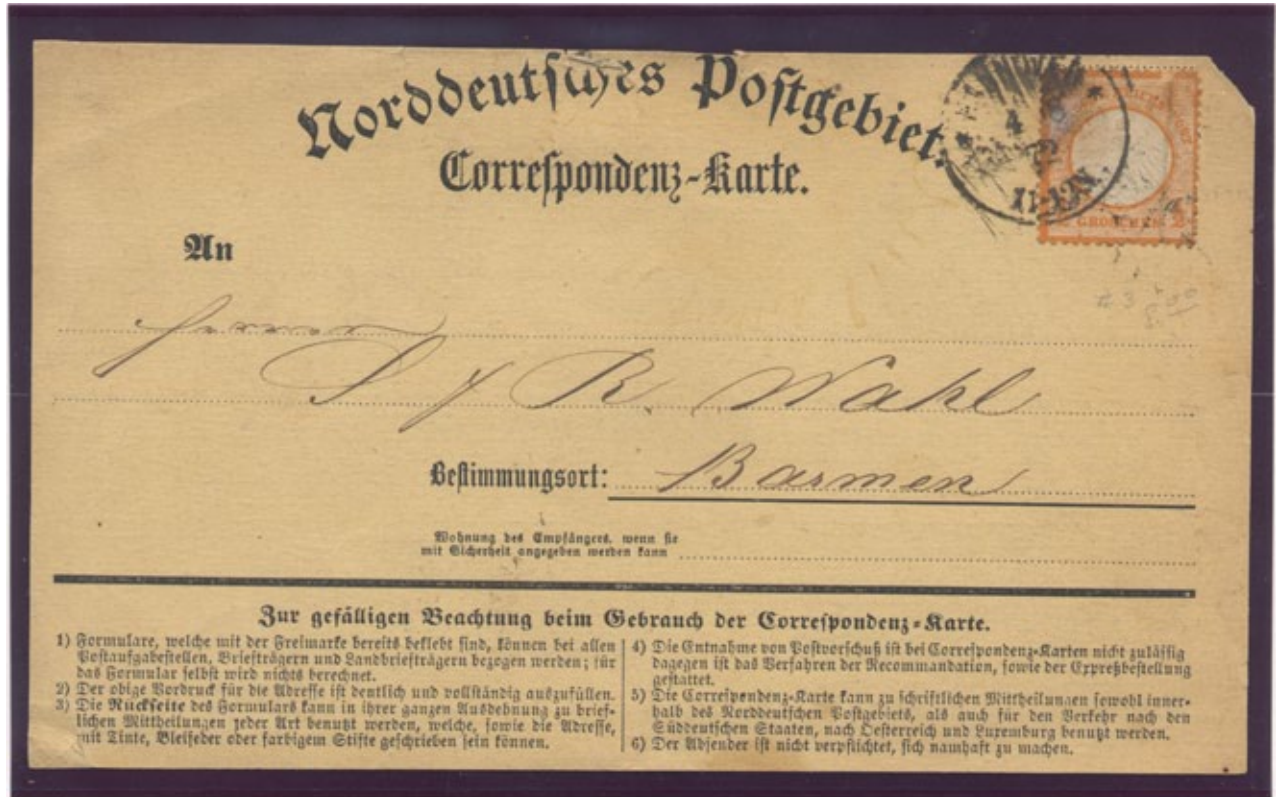 Norddeutsches Postgebiet.
Correspondenz-Karte.
HANNOVER
4
11-12N.
GROSCHEN
An
Herrn
R. Wahl
Bestimmungsort: Barmen
Wohnung des Empfängers, wenn sie
mit Sicherheit angegeben werden kann
Zur gefälligen Beachtung beim Gebrauch der Correspondenz-Karte.
1) Formulare, welche mit der Freimarke bereits beklebt sind, können bei allen
Postaufgabestellen, Briefträgern und Landbriefträgern bezogen werden; für
das Formular selbst wird nichts berechnet.
2) Der obige Vordruck für die Adresse ist deutlich und vollständig auszufüllen.
3) Die Rückseite des Formulars kann in ihrer ganzen Ausdehnung zu brief-
lichen Mittheilungen jeder Art benutzt werden, welche, sowie die Adresse,
mit Tinte, Bleifeder oder farbigem Stifte geschrieben sein können.
4) Die Entnahme von Postvorschuß ist bei Correspondenz-Karten nicht zulässig
dagegen ist das Verfahren der Recommandation, sowie der Expreßbestellung
gestattet.
5) Die Correspondenz-Karte kann zu schriftlichen Mittheilungen sowohl inner-
halb des Norddeutschen Postgebiets, als auch für den Verkehr nach den
Süddeutschen Staaten, nach Oesterreich und Luxemburg benutzt werden.
6) Der Absender ist nicht verpflichtet, sich namhaft zu machen.